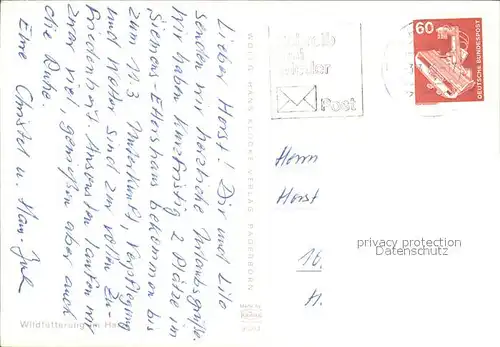 Lieber Horst! Dir und Lilo
senden wir herzliche Urlaubsgrüße.
Wir haben kurzfristig 2 Plätze im
Siemens-Ettershaus bekommen bis
zum 11.3 Unterkunft, Verpflegung
und Wetter sind zur vollen Zu-
friedenheit. Ansonsten laufen wir
zwar viel, genießen aber auch
die Ruhe.
Eure Christel u. Hans-
WOLFG. HANS KLOCKE VERLAG PADERBORN
Wildfütterung im Ha
Made by
Post
60
DEUTSCHE BUNDESPOST
Herrn
Horst
privacy protection
Datenschutz